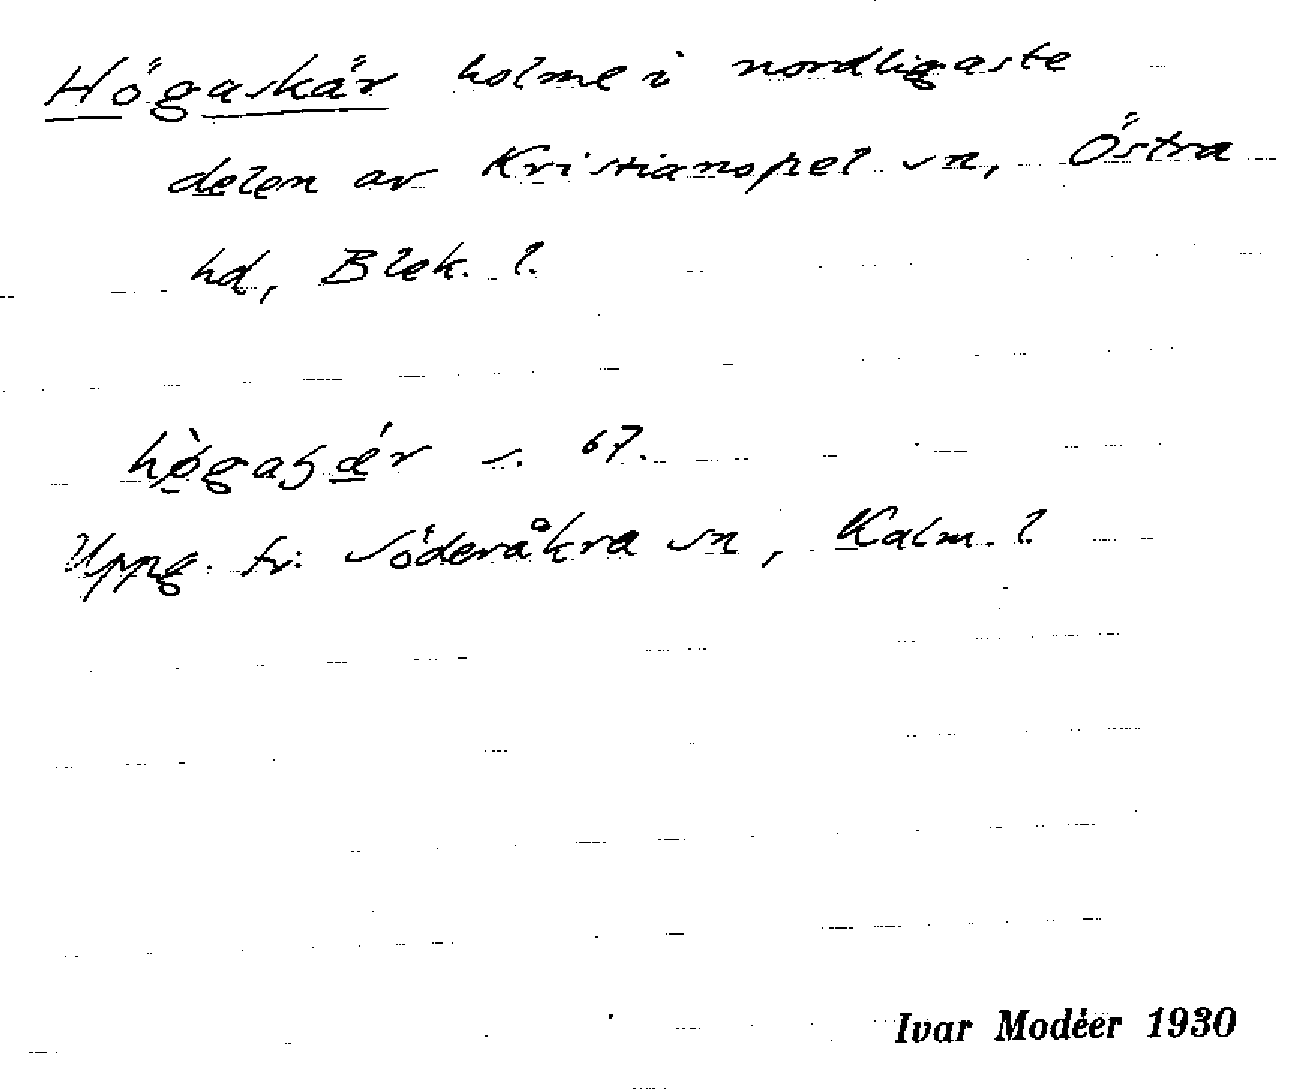 Högaskär holme i nordligaste
delen av Kristianopel sn, Östra
hd, Blek. l.
s. 67.
Uppg. fr. Söderåkra sn, Kalm. l.
Ivar Modéer 1930